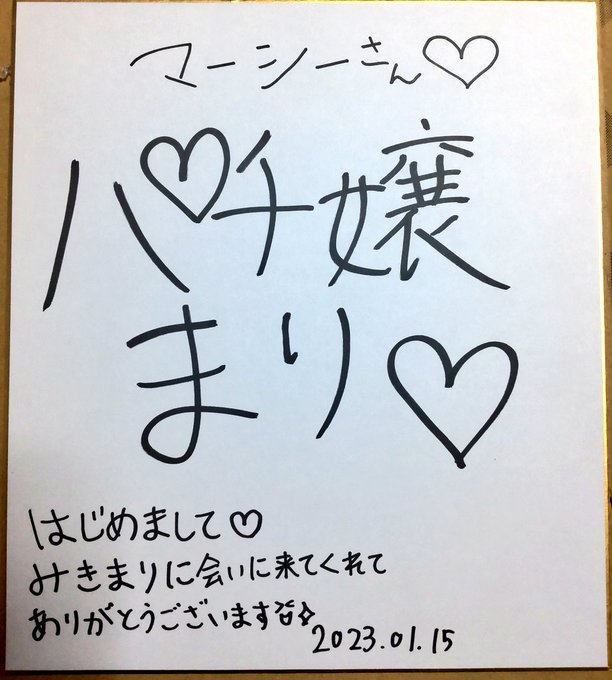 マーシーさん♡
パチ嬢
まり♡
はじめまして♡
みきまりに会いに来てくれて
ありがとうございます
2023.01.15